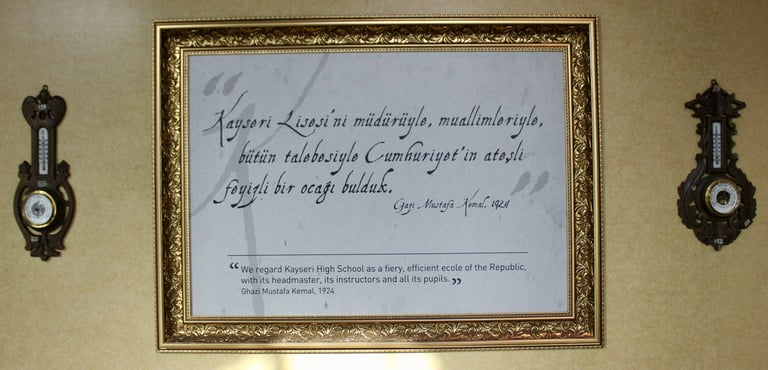 “
Kayseri Lisesi'ni müdürüyle, muallimleriyle,
bütün talebesiyle Cumhuriyet'in ateşli
feyizli bir ocağı bulduk. ”
Gazi Mustafa Kemal, 1924
“ We regard Kayseri High School as a fiery, efficient ecole of the Republic,
with its headmaster, its instructors and all its pupils. ”
Ghazi Mustafa Kemal, 1924